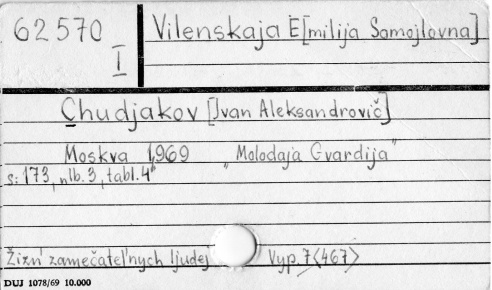 62570
I
Vilenskaja E[milija Samojlovna]
Chudjakov [Ivan Aleksandrovič]
Moskva 1969 „Molodaja Gvardija"
s: 173, nlb. 3, tabl. 4°
Žizn' zamečatel'nych ljudej Vyp. 7<467>
DUJ 1078/69 10.000